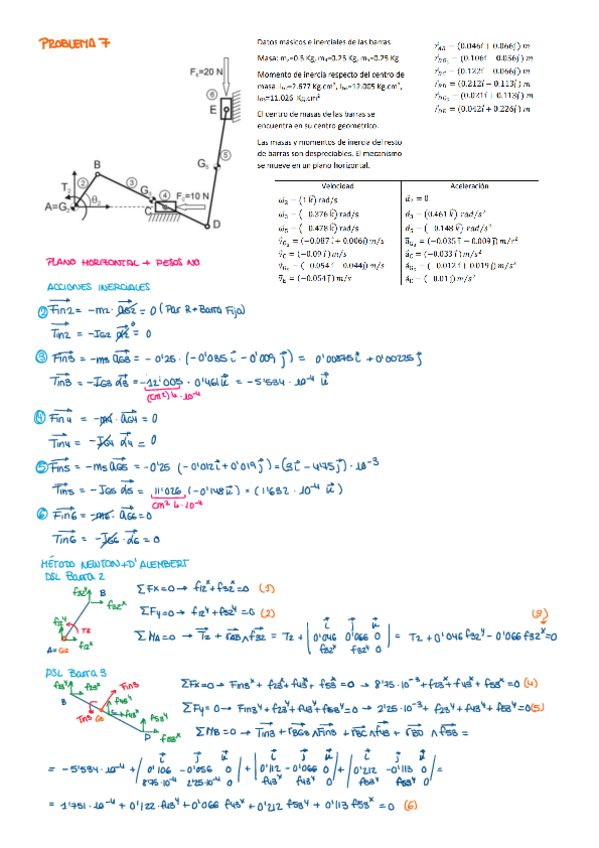 PROBLEMA 7
Datos másicos e inerciales de las barras.
Masa: m₂=0.5 Kg, m₃=0.25 Kg, m₅=0.25 Kg
Momento de inercia respecto del centro de
masa: I_G2=2.677 Kg.cm², I_G3=12.005 Kg.cm²,
I_G5=11.026 Kg.cm²
El centro de masas de las barras se
encuentra en su centro geométrico.
Las masas y momentos de inercia del resto
de barras son despreciables. El mecanismo
se mueve en un plano horizontal.
r_AB = (0.046i + 0.066j) m
r_BG3 = (0.106i - 0.056j) m
r_BC = (0.122i - 0.066j) m
r_BD = (0.212i - 0.113j) m
r_DG5 = (0.021i + 0.113j) m
r_DE = (0.042i + 0.226j) m
F₆=20 N
E
6
5
G₅
B
T₂
2
3
G₃
4
F₄=10 N
A=G₂
θ₂
C
D
Velocidad
Aceleración
ω₂ = (1 k) rad/s
α₂ = 0
ω₃ = (- 0.376 k) rad/s
α₃ = (0.461 k) rad/s²
ω₅ = (- 0.478 k) rad/s
α₅ = (- 0.148 k) rad/s²
v_G3 = (-0.087 i + 0.006j) m/s
a_G3 = (-0.035 i - 0.009 j) m/s²
v_C = (-0.09 i) m/s
a_C = (-0.033 i) m/s²
v_G5 = (- 0.054 i - 0.044j) m/s
a_G5 = (- 0.012 i + 0.019 j) m/s²
v_E = (-0.054 j) m/s
a_E = (- 0.01 j) m/s²
PLANO HORIZONTAL → PESOS NO
ACCIONES INERCIALES
② Fin2 = -m2 · aG2 = 0 (Par R + Barra Fija)
Tin2 = -IG2 α2 = 0
③ Fin3 = -m3 aG3 = -0'25 · (-0'035 i - 0'009 j) = 0'00875 i + 0'00225 j
Tin3 = -IG3 α3 = -12'005 · 0'461 k = -5'534 · 10⁻⁴ k
(cm²) ↳ ·10⁻⁴
④ Fin4 = -m4 · aG4 = 0
Tin4 = -IG4 α4 = 0
⑤ Fin5 = -m5 aG5 = -0'25 (-0'012 i + 0'019 j) = (3 i - 4'75 j) · 10⁻³
Tin5 = -IG5 α5 = 11'026 (-0'148 k) = (1'632 · 10⁻⁴ k)
cm² ↳ ·10⁻⁴
⑥ Fin6 = -m6 · aG6 = 0
Tin6 = -IG6 · α6 = 0
MÉTODO NEWTON + D'ALEMBERT
DSL Barra 2
f32ʸ B
f32ˣ
f12ʸ
T2
A=G2
f12ˣ
ΣFx=0 → f12ˣ + f32ˣ = 0 (1)
ΣFy=0 → f12ʸ + f32ʸ = 0 (2)
(3)
ΣMA=0 → T2 + rAB ∧ f32 = T2 + | i j k ; 0'046 0'066 0 ; f32ˣ f32ʸ 0 | = T2 + 0'046 f32ʸ - 0'066 f32ˣ = 0
DSL Barra 3
f23ʸ
f23ˣ
Fin3
B
Tin3
G3
f43ʸ
f43ˣ
f53ʸ
D
f53ˣ
ΣFx=0 → Fin3ˣ + f23ˣ + f43ˣ + f53ˣ = 0 → 8'75·10⁻³ + f23ˣ + f43ˣ + f53ˣ = 0 (4)
ΣFy=0 → Fin3ʸ + f23ʸ + f43ʸ + f53ʸ = 0 → 2'25·10⁻³ + f23ʸ + f43ʸ + f53ʸ = 0 (5)
ΣMB=0 → Tin3 + rBG3 ∧ Fin3 + rBC ∧ f43 + rBD ∧ f53 =
= -5'534·10⁻⁴ + | i j k ; 0'106 -0'056 0 ; 8'75·10⁻³ 2'25·10⁻³ 0 | + | i j k ; 0'112 -0'066 0 ; f43ˣ f43ʸ 0 | + | i j k ; 0'212 -0'113 0 ; f53ˣ f53ʸ 0 | =
= 1'751·10⁻⁴ + 0'122 f43ʸ + 0'066 f43ˣ + 0'212 f53ʸ + 0'113 f53ˣ = 0 (6)